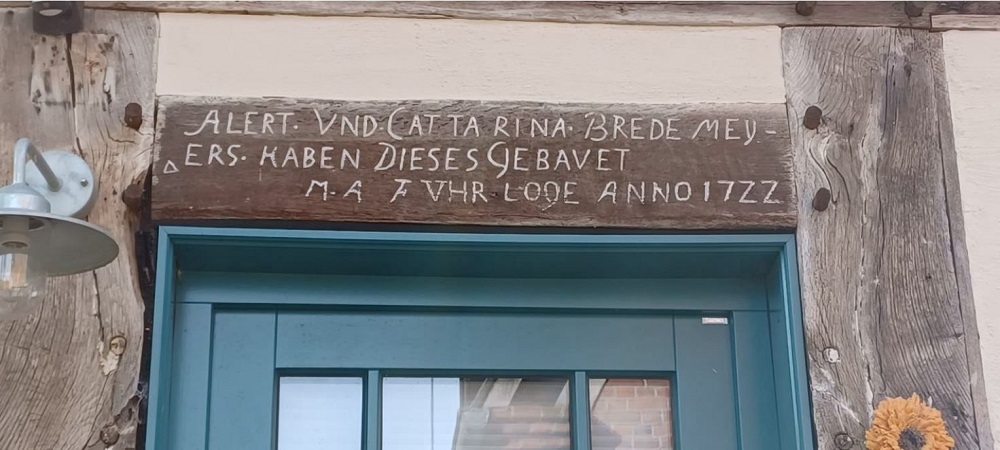 ALERT· VND CATTARINA· BREDEMEY-
ERS· HABEN DIESES GEBAVET
M·A 7 VHR·LODE ANNO 1722